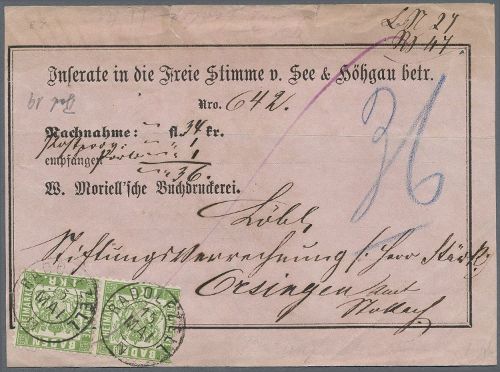 L. N. 27
R 47
Inserate in die Freie Stimme v. See & Höhgau betr.
Nro. 642.
Nachnahme: " fl. 34 kr.
Postprov: " " 1
empfangen. Porto " " 1
" " 36.
W. Moriell'sche Buchdruckerei.
36
Löbl.
Stiftungsverrechnung
Orsingen Amt
Stockach
FREIMARKE BADEN
RADOLFZELL
15 MAI